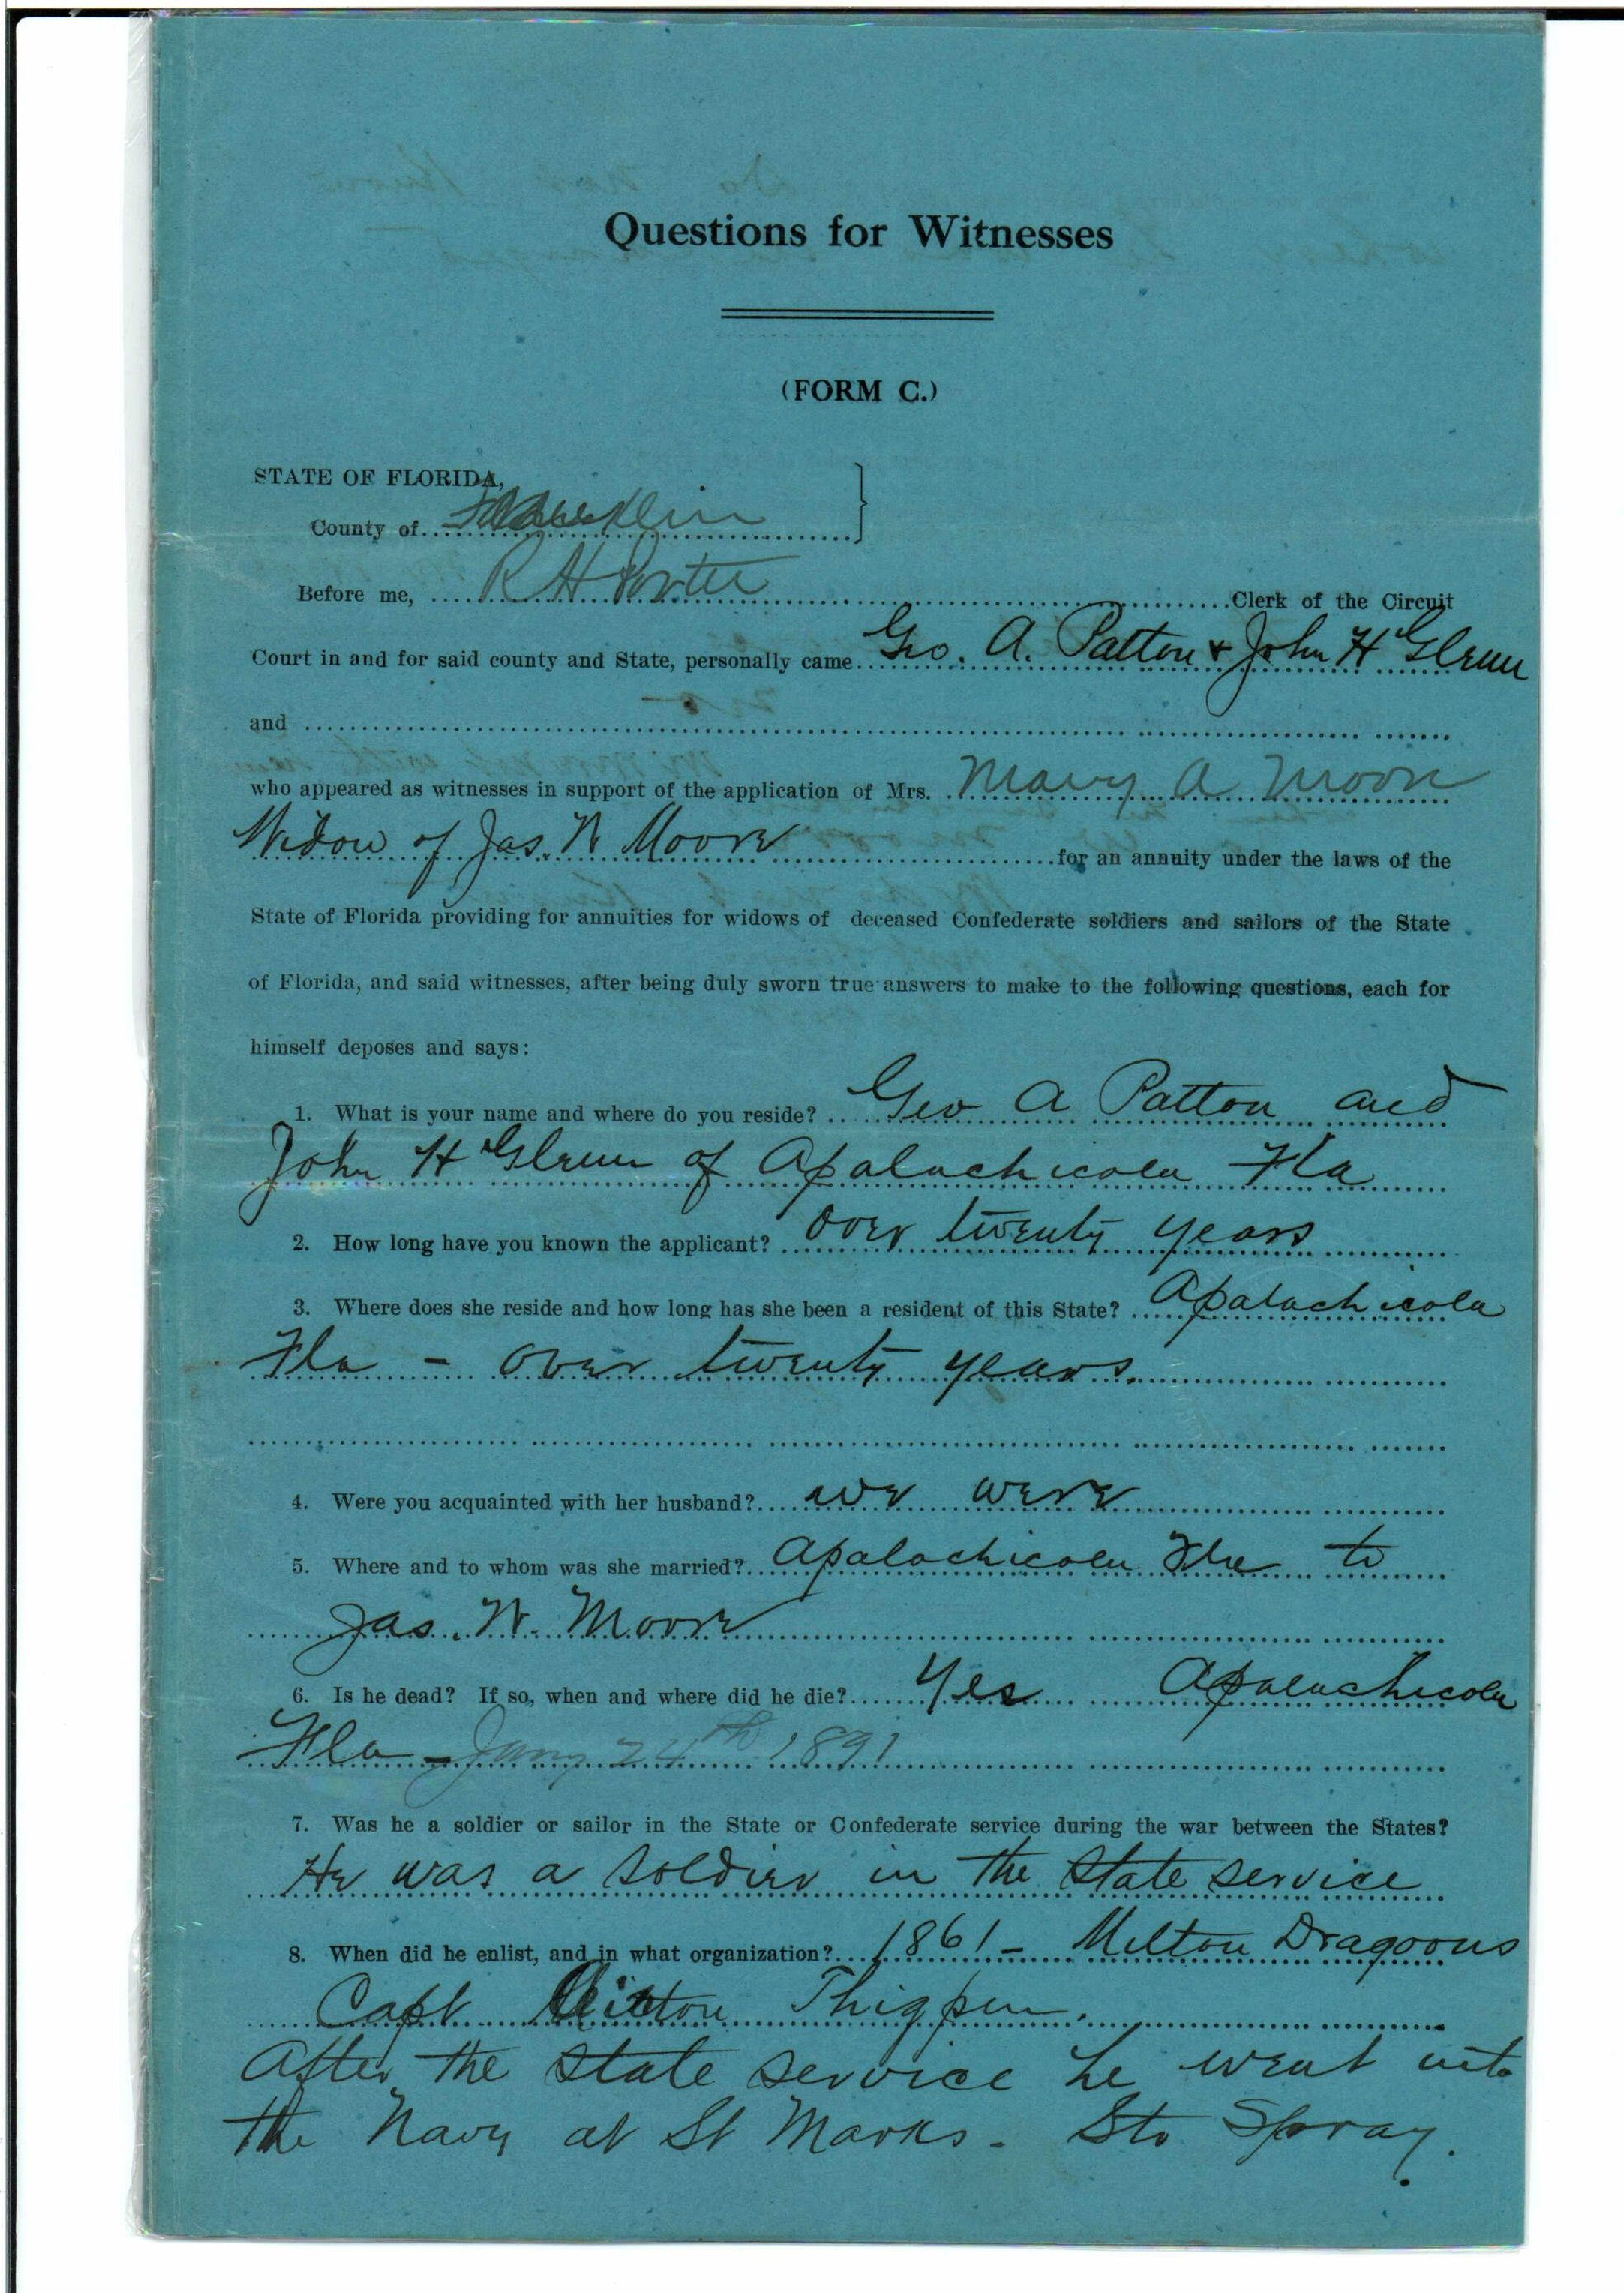 Questions for Witnesses
(FORM C.)
STATE OF FLORIDA,
County of Franklin
Before me, R H Porter Clerk of the Circuit
Court in and for said county and State, personally came Geo. A. Patton & John H Glenn
and
who appeared as witnesses in support of the application of Mrs. Mary A Moore
Widow of Jas. N Moore for an annuity under the laws of the
State of Florida providing for annuities for widows of deceased Confederate soldiers and sailors of the State
of Florida, and said witnesses, after being duly sworn true answers to make to the following questions, each for
himself deposes and says:
1. What is your name and where do you reside? Geo A Patton and
John H Glenn of Apalachicola Fla
2. How long have you known the applicant? Over twenty years
3. Where does she reside and how long has she been a resident of this State? Apalachicola
Fla - over twenty years.
4. Were you acquainted with her husband? we were
5. Where and to whom was she married? Apalachicola Fla to
Jas. N. Moore
6. Is he dead? If so, when and where did he die? Yes Apalachicola
Fla - Jany 24th 1891
7. Was he a soldier or sailor in the State or Confederate service during the war between the States?
He was a soldier in the State service
8. When did he enlist, and in what organization? 1861 - Milton Dragoons
Capt Thigpen.
After the State service he went into
the Navy at St Marks - Str Spray.